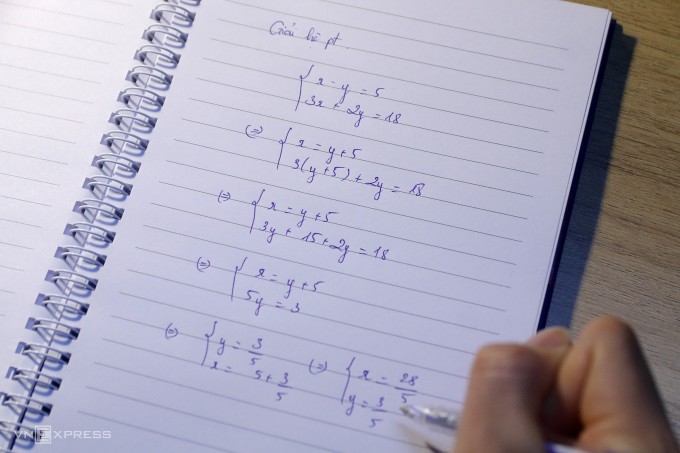 Giải hệ pt.
{ x - y = 5
3x + 2y = 18
(=) { x = y+5
3(y+5) + 2y = 18
(=) { x = y+5
3y + 15 + 2y = 18
(=) { x = y+5
5y = 3
(=) { y = 3/5 (=) { x = 28/5
x = 5 + 3/5 y = 3/5
VNEXPRESS